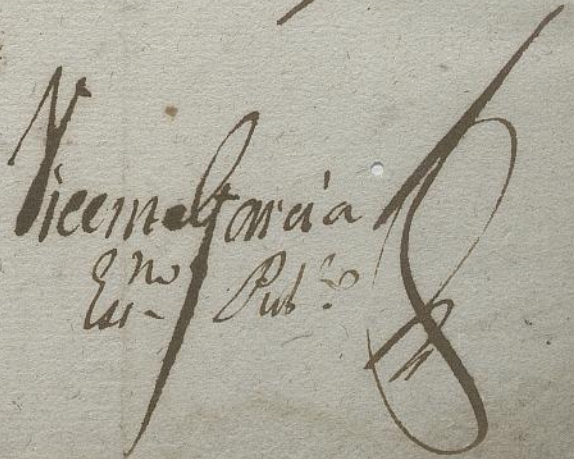 Vicente Garcia
Esno Pubco